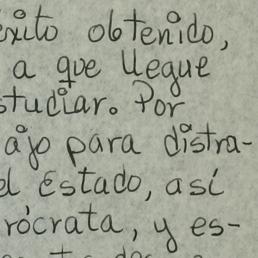 éxito obtenido,
a que llegue
studiar. Por
ajo para distra-
el Estado, así
rócrata, y es-